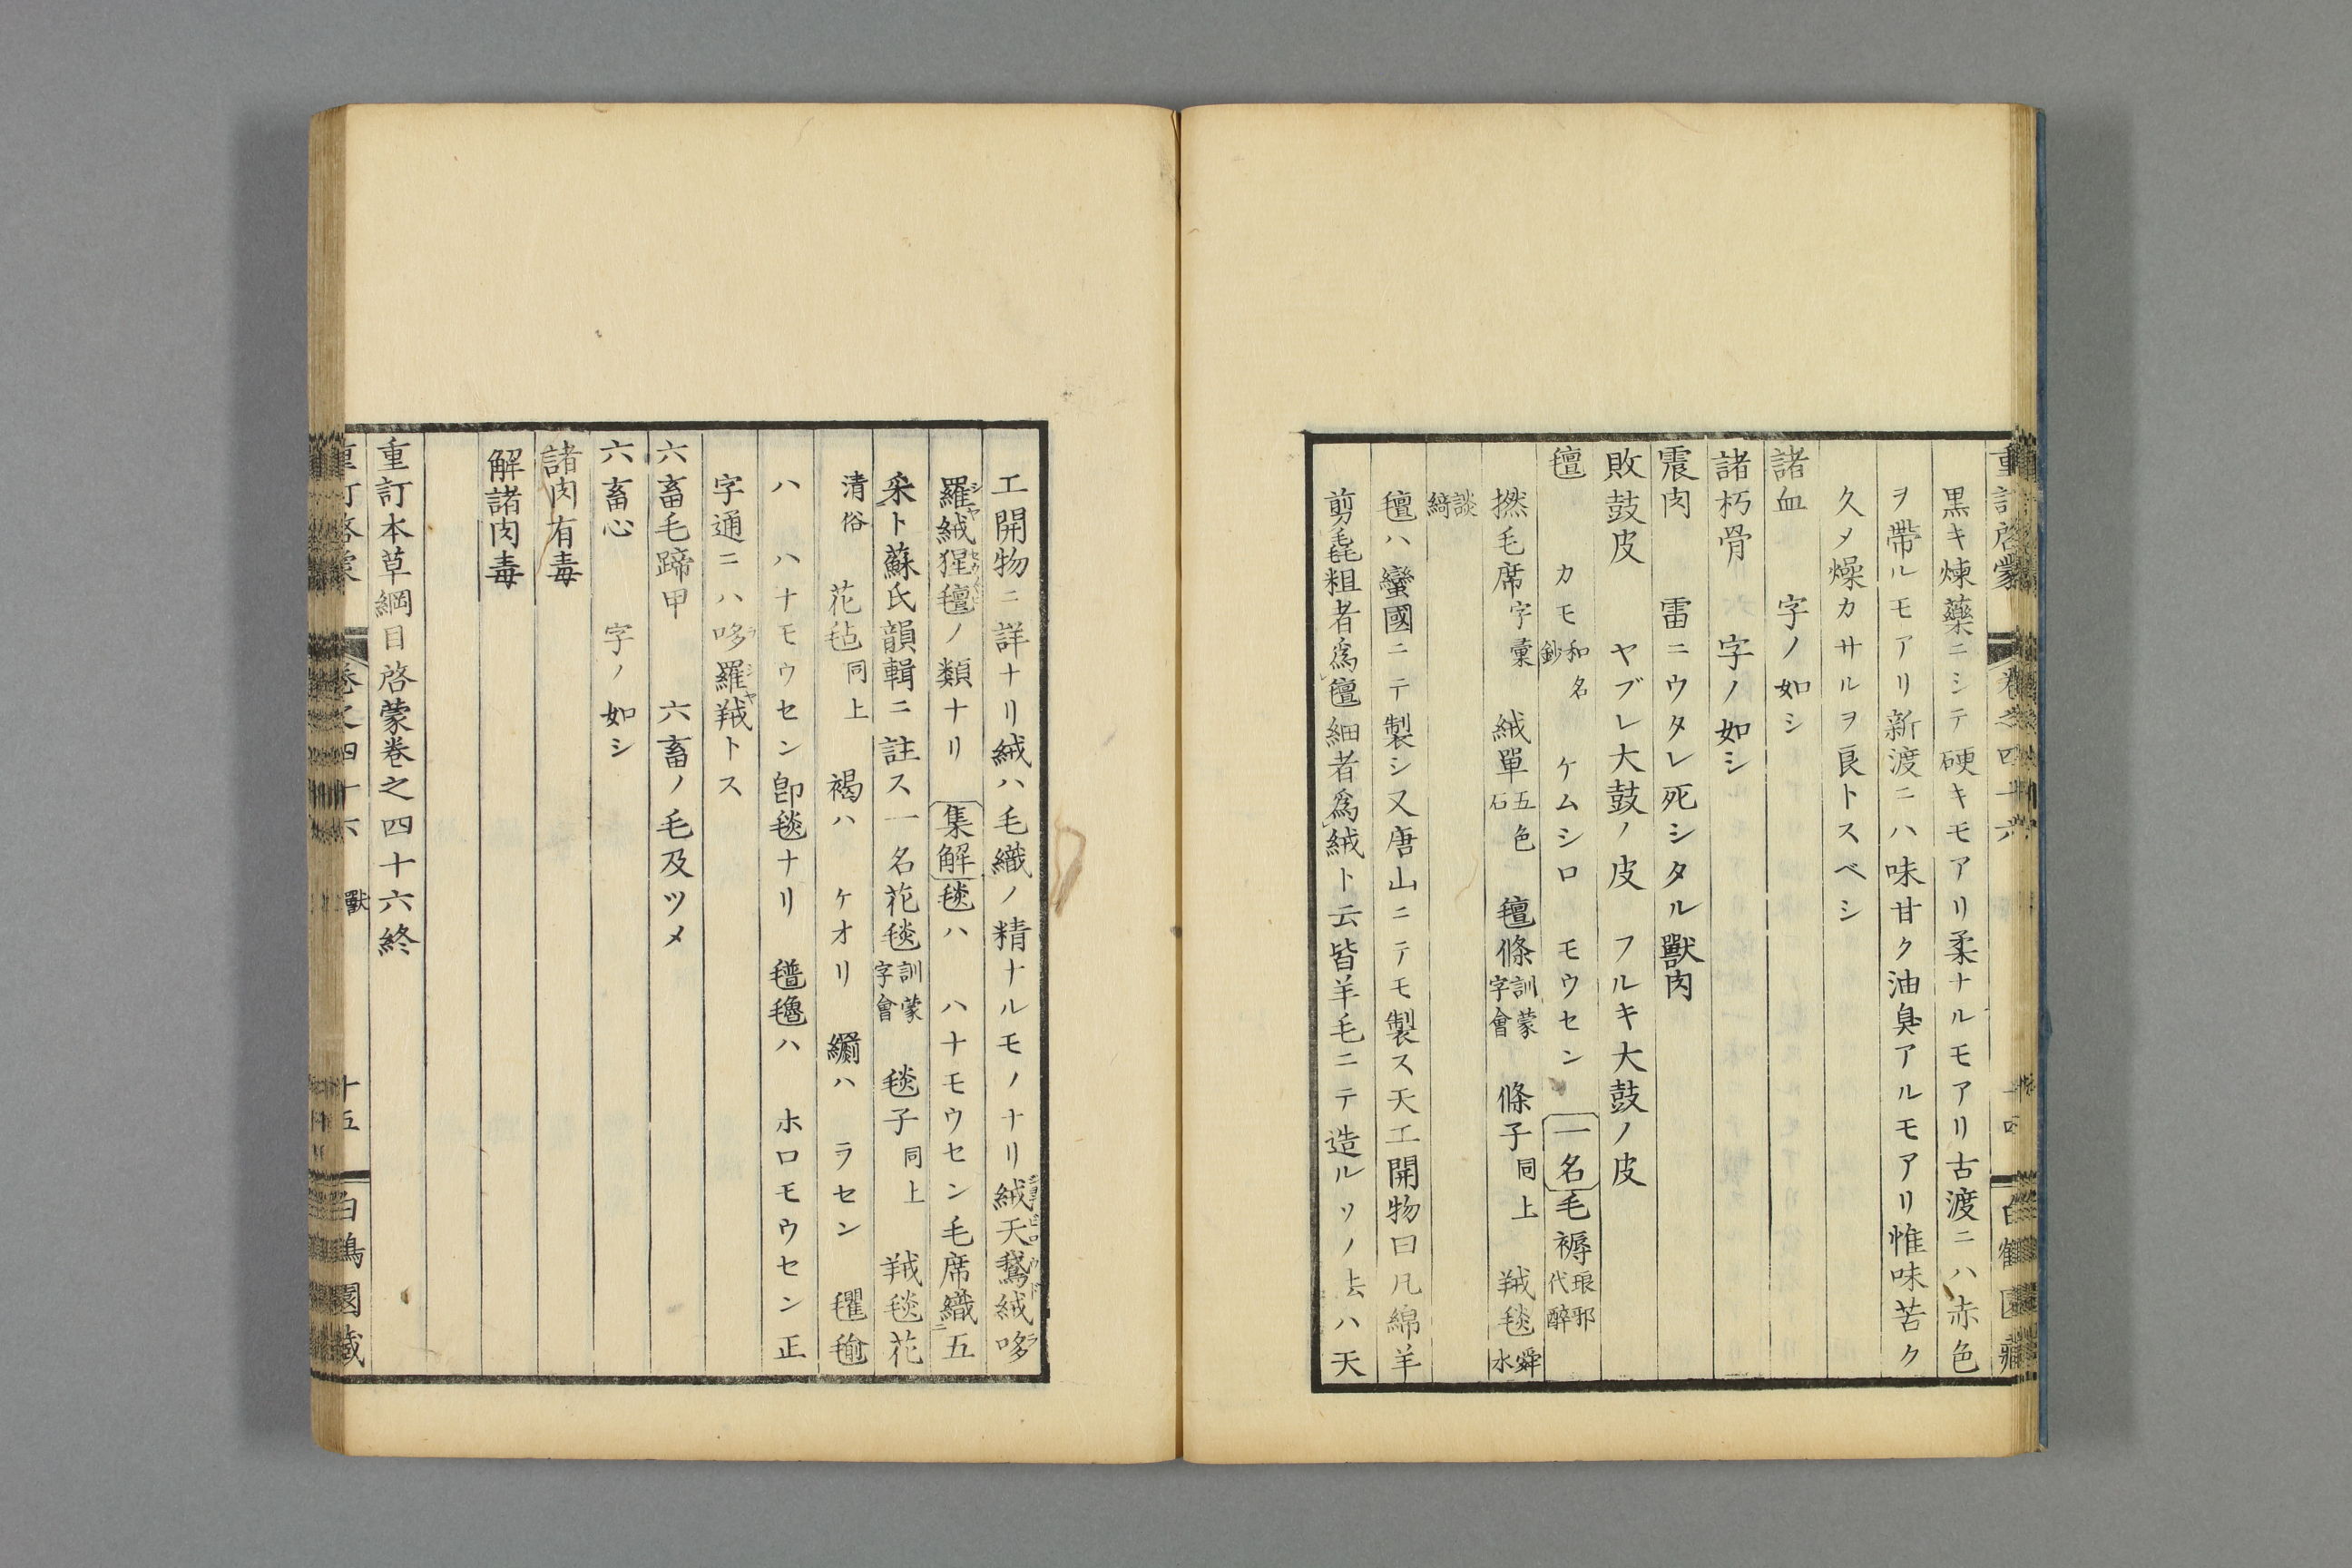 黒キ煉藥ニシテ硬キモアリ柔ナルモアリ古渡ニハ赤色
ヲ帶ルモアリ新渡ニハ味甘ク油臭アルモアリ惟味苦ク
久メ燥カサルヲ良トスベシ
諸血 字ノ如シ
諸朽骨 字ノ如シ
震肉 雷ニウタレ死シタル獸肉
敗鼓皮 ヤブレ大鼓ノ皮 フルキ大鼓ノ皮
氊 カモ和名鈔 ケムシロ モウセン 一名毛褥琅邪代醉
撚毛席字彙 絨單五色石 氊條訓蒙字會 條子同上 羢毯舜水
談綺
氊ハ蠻國ニテ製シ又唐山ニテモ製ス天工開物曰凡綿羊
剪毳粗者爲氊細者爲絨ト云皆羊毛ニテ造ルソノ法ハ天
工開物ニ詳ナリ絨ハ毛織ノ精ナルモノナリ絨天鵞絨哆
羅絨猩氊ノ類ナリ 集解毯ハ ハナモウセン毛席織ニ五
采ト蘇氏韻輯ニ註ス一名花毯訓蒙字會 毯子同上 羢毯花
清俗 花毡同上 褐ハ ケオリ 罽ハ ラセン 氍毹
ハ ハナモウセン卽毯ナリ 氆氌ハ ホロモウセン正
字通ニハ哆羅羢トス
六畜毛蹄甲 六畜ノ毛及ツメ
六畜心 字ノ如シ
諸肉有毒
解諸肉毒
重訂本草綱目啓蒙卷之四十六終
獸
十五